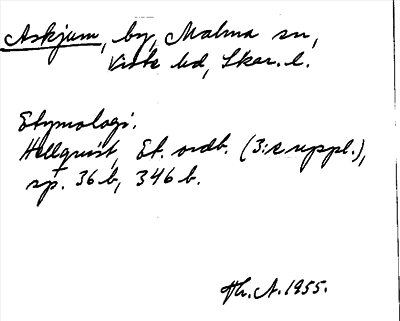 Askjum, by, Malma sn,
Viste hd, Skar. l.
Etymologi.
Hellquist, Et. ordb. (3:e uppl.),
sp. 36 b, 346 b.
Hr. A. 1955.